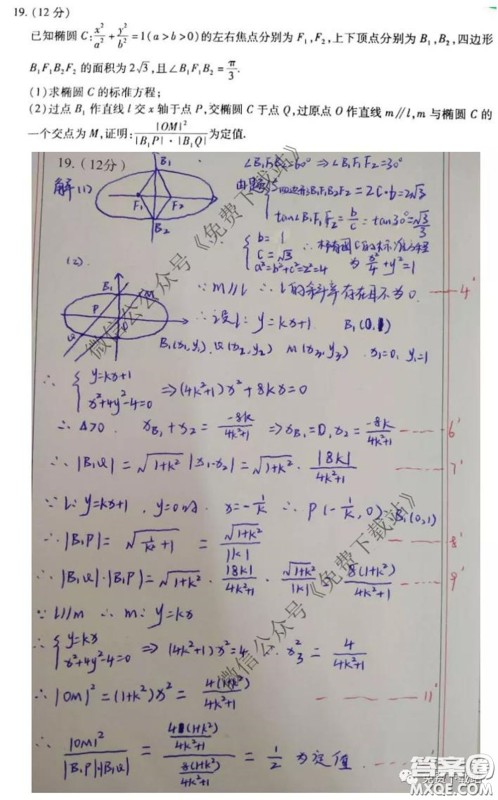 19. (12 分)
已知椭圆 C: x²/a² + y²/b² = 1(a>b>0)的左右焦点分别为 F₁,F₂,上下顶点分别为 B₁,B₂,四边形
B₁F₁B₂F₂ 的面积为 2√3,且∠B₁F₁B₂ = π/3.
(1)求椭圆 C 的标准方程;
(2)过点 B₁ 作直线 l 交 x 轴于点 P,交椭圆 C 于点 Q,过原点 O 作直线 m∥l,m 与椭圆 C 的
一个交点为 M,证明: |OM|²/(|B₁P|·|B₁Q|) 为定值.
19. (12分)
解(1)
B₁
F₁ F₂
B₂
∠B₁F₁B₂=60° ⇒∠B₁F₁F₂=30°
由题 { S四边形B₁F₁B₂F₂ = 2c·b=2√3
tan∠B₁F₁F₂ = b/c = tan30° = √3/3
{ b=1
c=√3
a²=b²+c²=4
∴椭圆C的标准方程
为 x²/4+y²=1
(2)
B₁ M
P
Q
∵ m∥l ∴ l的斜率存在且不为0 4'
∴设l: y=kx+1 B₁(0,1)
B₁(x₁,y₁) Q(x₂,y₂) M(x₃,y₃) x₁=0, y₁=1
∴ { y=kx+1
x²+4y²-4=0 ⇒(4k²+1)x²+8kx=0
∴ Δ>0 xB₁+x₂ = -8k/(4k²+1) ⇒xB₁=0, x₂= -8k/(4k²+1) 6'
∴ |B₁Q| = √(1+k²) |x₁-x₂| = √(1+k²) · |8k|/(4k²+1) 7'
∵ l: y=kx+1, y=0时 x=-1/k ∴ P(-1/k,0) B₁(0,1)
∴ |B₁P| = √(1/k²+1) = √(1+k²)/|k| 8'
∴ |B₁Q|·|B₁P| = √(1+k²) · |8k|/(4k²+1) · √(1+k²)/|k| = 8(1+k²)/(4k²+1) 9'
∵ l∥m ∴ m: y=kx
∴ { y=kx
x²+4y²-4=0 ⇒ (4k²+1)x²=4 x₃² = 4/(4k²+1)
∴ |OM|² = (1+k²)x² = 4(1+k²)/(4k²+1) 11'
∴ |OM|²/(|B₁P|·|B₁Q|) = (4(1+k²)/(4k²+1))/(8(1+k²)/(4k²+1)) = 1/2 为定值
微信公众号《免费下载站》
微信公众号《免费下载站》
答案圈
MXQE.COM